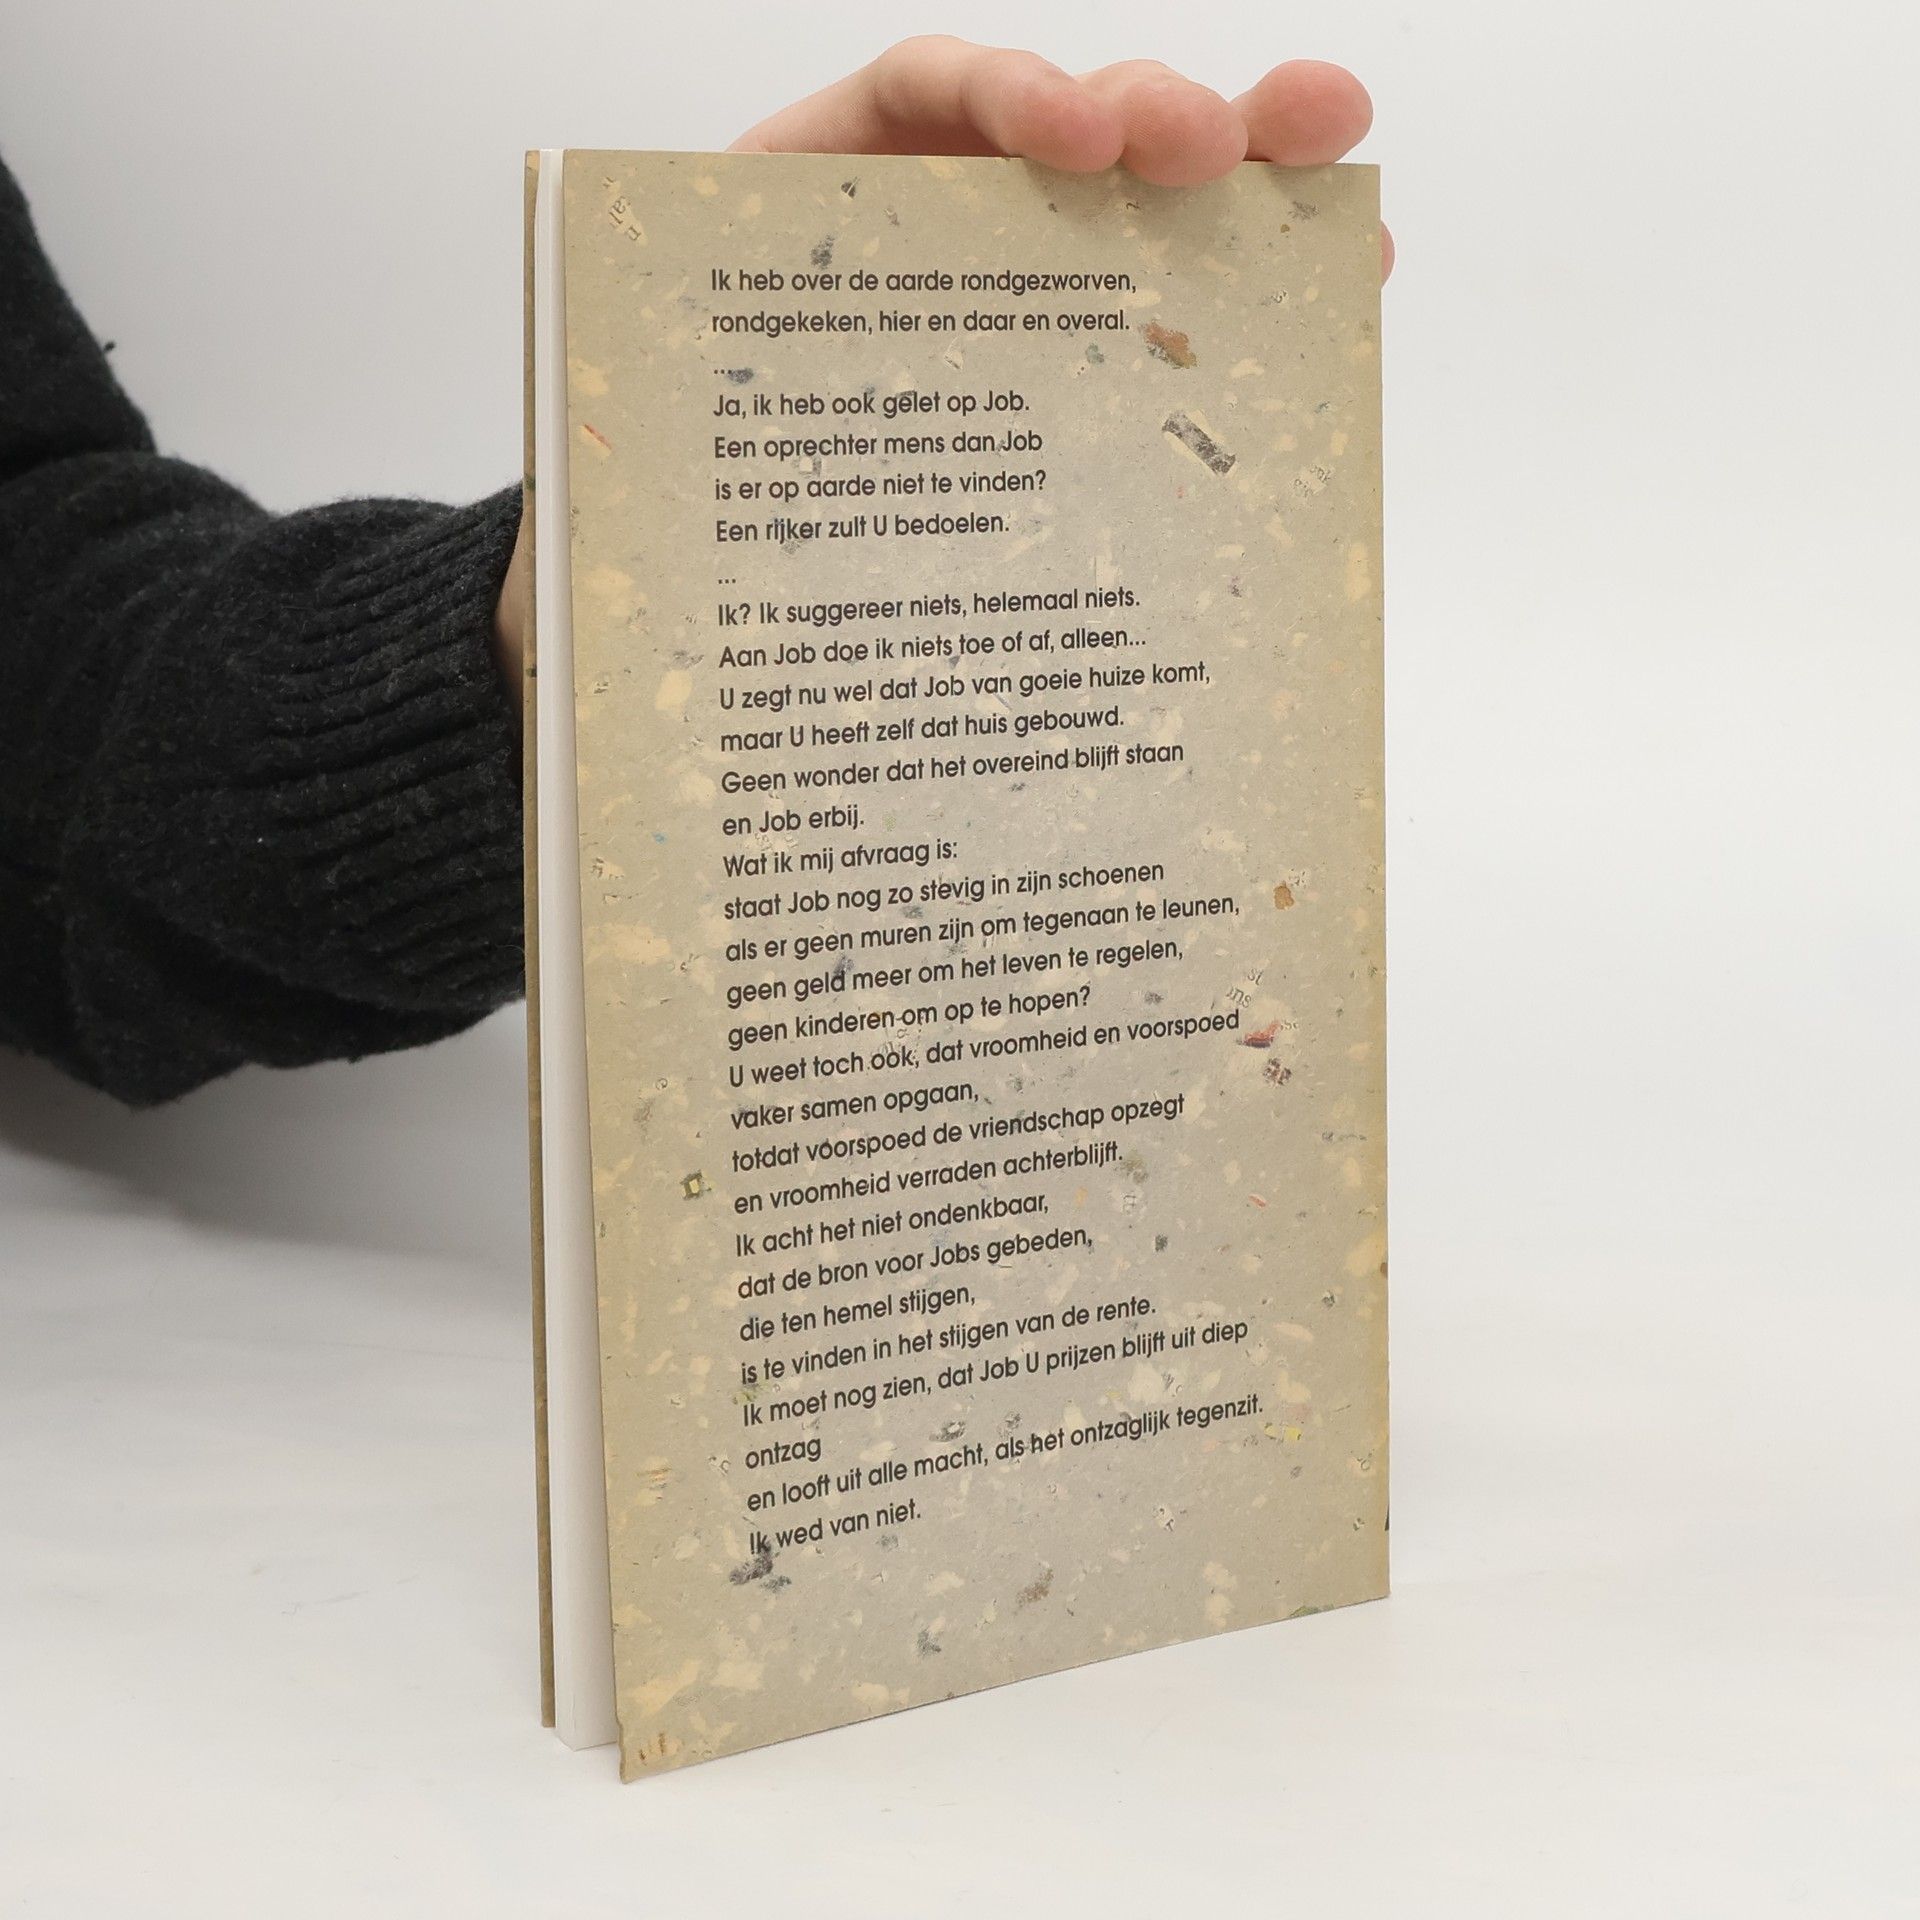 Ik heb over de aarde rondgezworven,
rondgekeken, hier en daar en overal.
...
Ja, ik heb ook gelet op Job.
Een oprechter mens dan Job
is er op aarde niet te vinden?
Een rijker zult U bedoelen.
...
Ik? Ik suggereer niets, helemaal niets.
Aan Job doe ik niets toe of af, alleen...
U zegt nu wel dat Job van goeie huize komt,
maar U heeft zelf dat huis gebouwd.
Geen wonder dat het overeind blijft staan
en Job erbij.
Wat ik mij afvraag is:
staat Job nog zo stevig in zijn schoenen
als er geen muren zijn om tegenaan te leunen,
geen geld meer om het leven te regelen,
geen kinderen om op te hopen?
U weet toch ook, dat vroomheid en voorspoed
vaker samen opgaan,
totdat voorspoed de vriendschap opzegt
en vroomheid verraden achterblijft.
Ik acht het niet ondenkbaar,
dat de bron voor Jobs gebeden,
die ten hemel stijgen,
is te vinden in het stijgen van de rente.
Ik moet nog zien, dat Job U prijzen blijft uit diep
ontzag
en looft uit alle macht, als het ontzaglijk tegenzit.
Ik wed van niet.